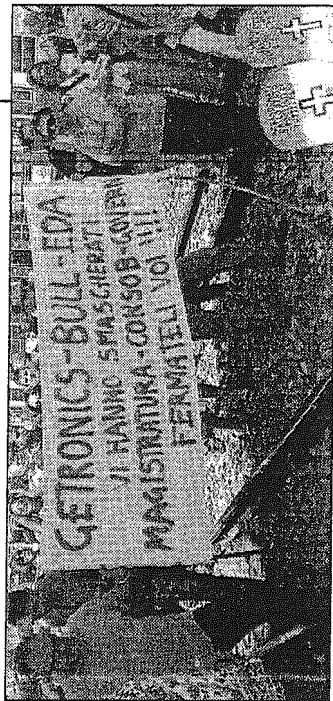 GETRONICS-BULL-EDA
VI HANNO SMASCHERATI
MAGISTRATURA-CONSOB-GOVERN
FERMATELI VOI !!!!